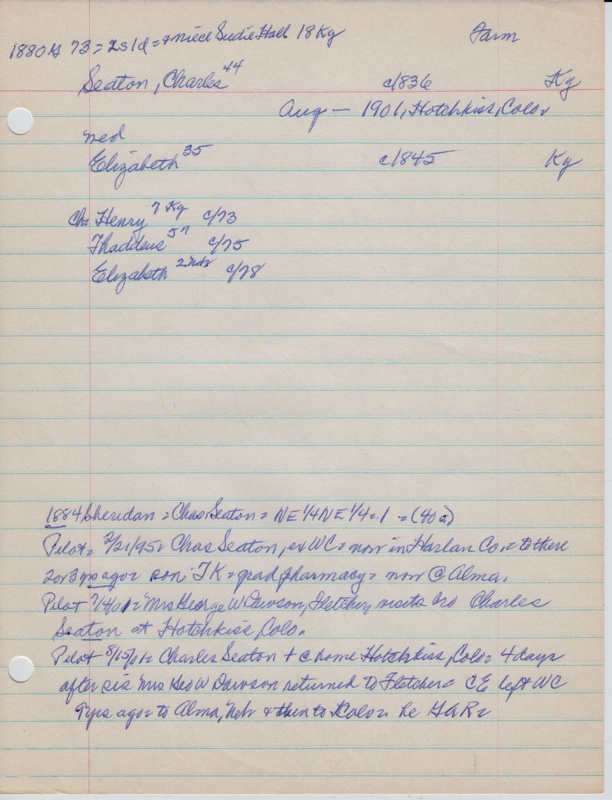 1880 G 73 = 2s 1d = & niece Sudie Hall 18 Ky Farm
Seaton, Charles 44 c/1836 Ky
Aug — 1901, Hotchkiss, Colo.
med
Elizabeth 35 c/1845 Ky
Ch Henry 7 Ky c/73
Thaddeus 5 " c/75
Elizabeth 2 c/78
1884 Sheridan = Chas Seaton = NE 1/4 NE 1/4 = 1 = (40 a)
Pilot = 2/21/95 = Chas Seaton, ex WC = now in Harlan Co. = to there
2 or 3 mo ago = son TK = grad pharmacy = now @ Alma.
Pilot 7/4/01 = Mrs George W Dawson, Fletcher, visits bro Charles
Seaton at Hotchkiss, Colo.
Pilot 8/15/01 = Charles Seaton + @ home Hotchkiss, Colo = 4 days
after sis Mrs Geo W Dawson returned to Fletcher = CE left WC
9 yrs ago = to Alma, Nebr & then to Colo = he GAR =